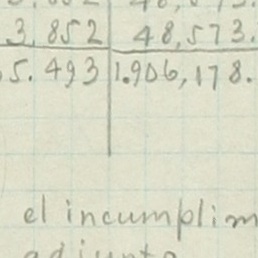 3,852 48,573.
5.493 1.906,178.
el incumplim
adjunto